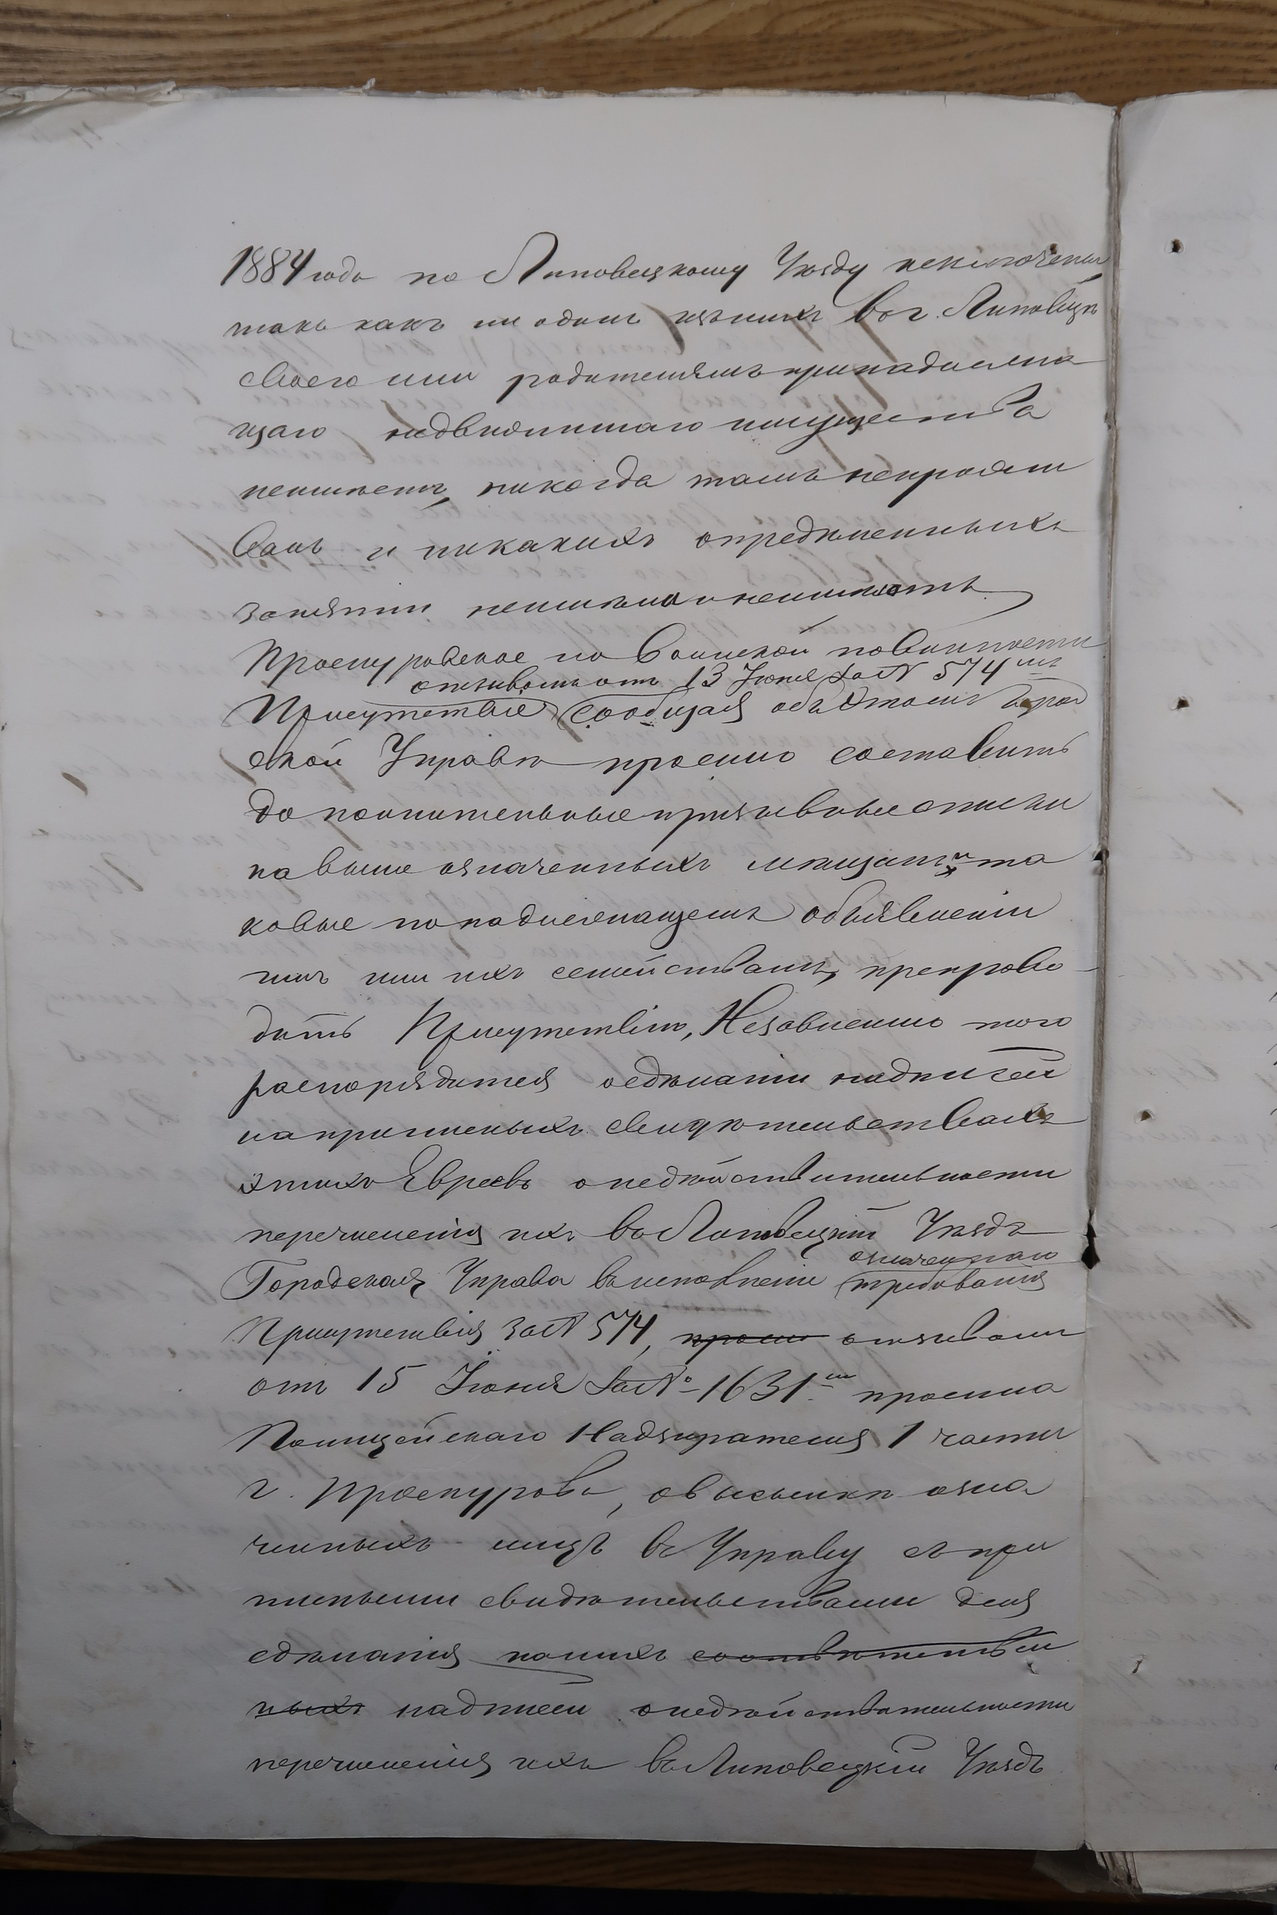 1884 года по Липовецкому Уѣзду неключены
такъ какъ ни одинъ изънихъ въ г. Липовцѣ
своего или родителямъ принадлежа
щаго недвижимаго имущества
неимѣетъ, никогда тамъ непрожи
валъ и никакихъ опредѣленныхъ
занятій неимѣлъ и неимѣетъ.
Проскуровское по Воинской повинности
отзывомъ отъ 13 Іюня за № 574мъ
Присутствіе сообщая объ этомъ Город
ской Управѣ просило составить
дополнительные призывные списки
на выше означенныхъ мѣщанъ и та
ковые по надлежащемъ объявленіи
имъ или ихъ семействамъ, препрово
дить Присутствію, Независимо того
распорядится сдѣлати надписей
на приписныхъ свидѣтельствахъ
этихъ Евреевъ о недѣйствительности
перечисленія ихъ въ Липовецкій Уѣздъ
означеннаго
Городская Управа въ исполненіе требованія
Присутствія за № 574, просило отзывомъ
отъ 15 Іюня за № 1631мъ просила
Полицейскаго Надзирателя 1 части
г. Проскурова, о высылкѣ озна
ченныхъ лицъ въ Управу съ при
писными свидѣтельствами для
сдѣланія на нихъ соотвѣтствен
ныхъ надписей о недѣйствительности
перечисленія ихъ въ Липовецкій Уѣздъ